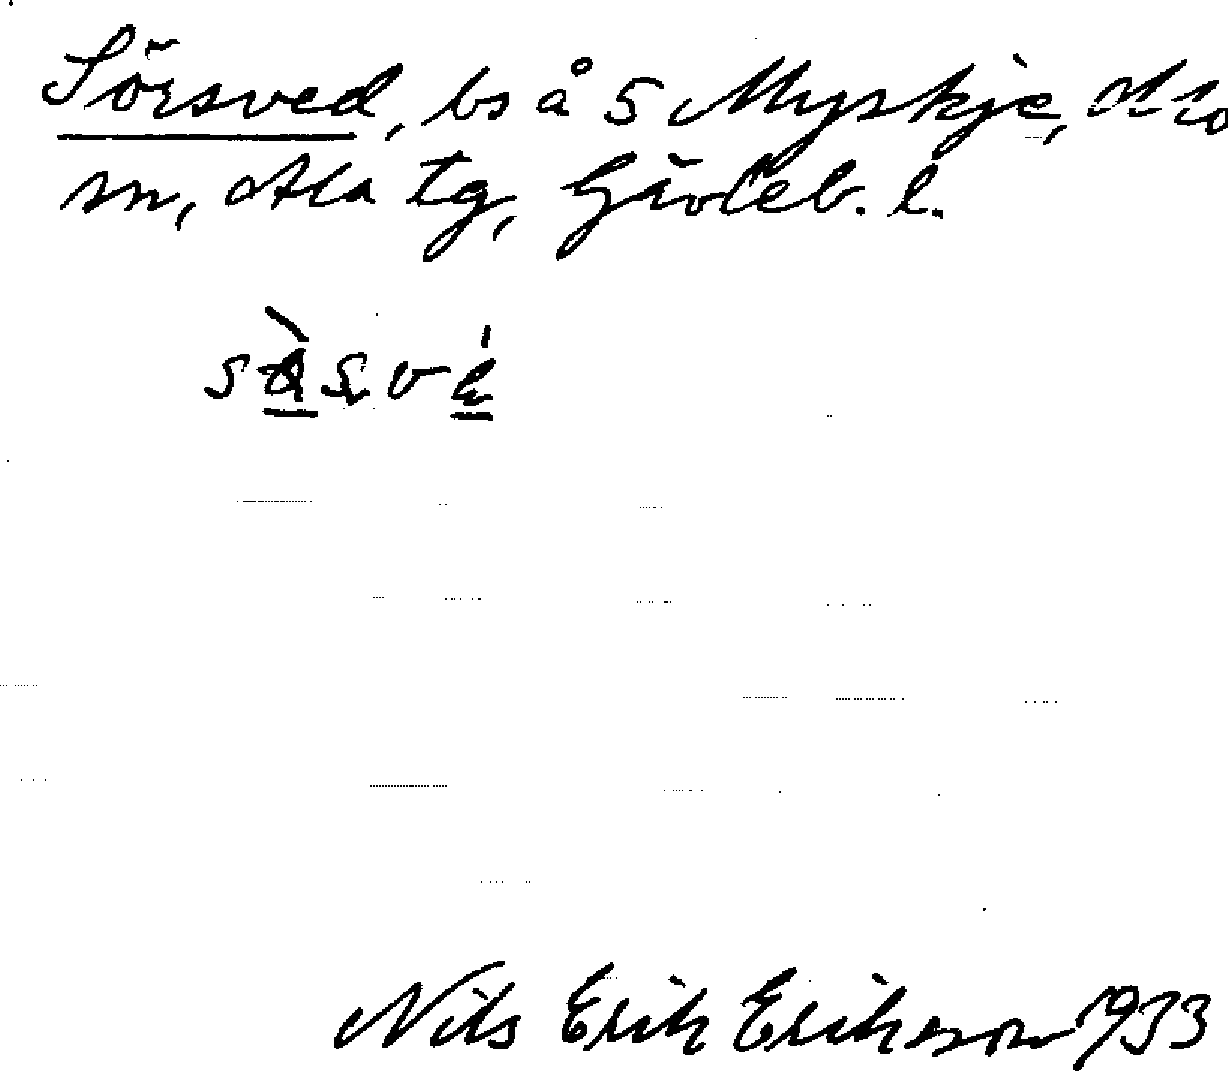 Sörsved, bs å 5 Myskje, Alo
sn, Ala tg, Gävleb. l.
Nils Erik Erikson 1933